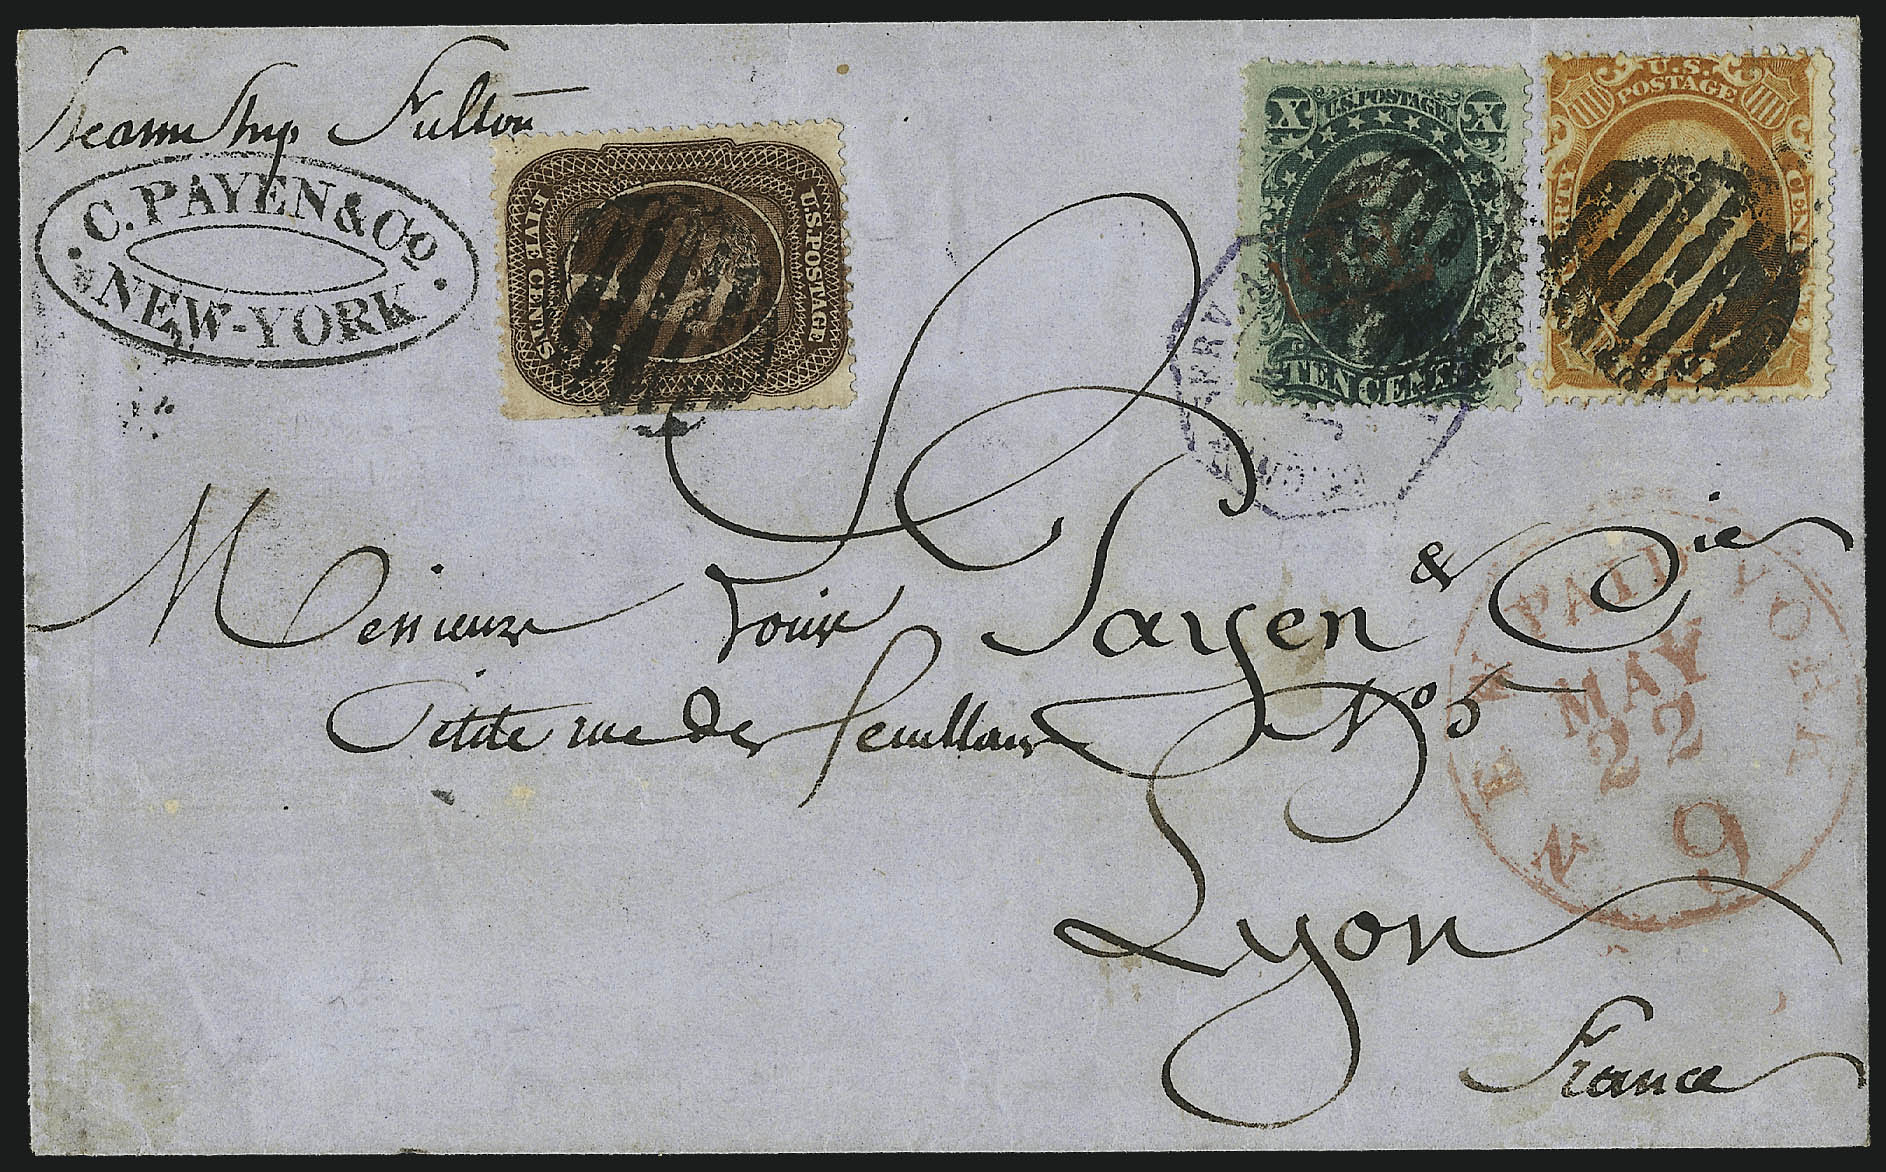 Steam Ship Fulton
C. PAYEN & Co.
NEW-YORK
U.S. POSTAGE
FIVE CENTS
X U.S. POSTAGE X
TEN CENTS
U.S.
POSTAGE
THIRTY CENTS
Messieurs Louis Payen & Cie
Petite rue des feuillans No 5
Lyon
France
NEW PAID YORK
MAY
22
9